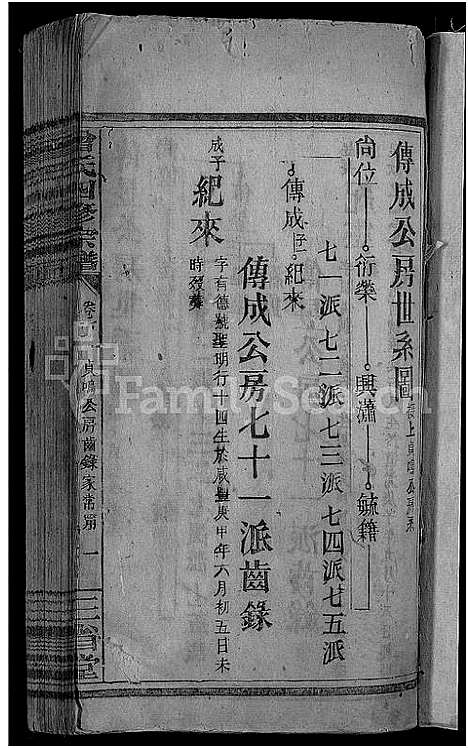 傳成公房世系圖
尚位 衍榮 興瀟 毓籍
七一派 七二派 七三派 七四派 七五派
傳成 子 紀來
傳成公房七十一派齒錄
成子 紀來 字有德號聖明行十四生於咸豐庚申年六月初五日未
時歿葬
曾氏四修宗譜
貞鳴公房齒錄家常
一
三省堂
FamilySearch